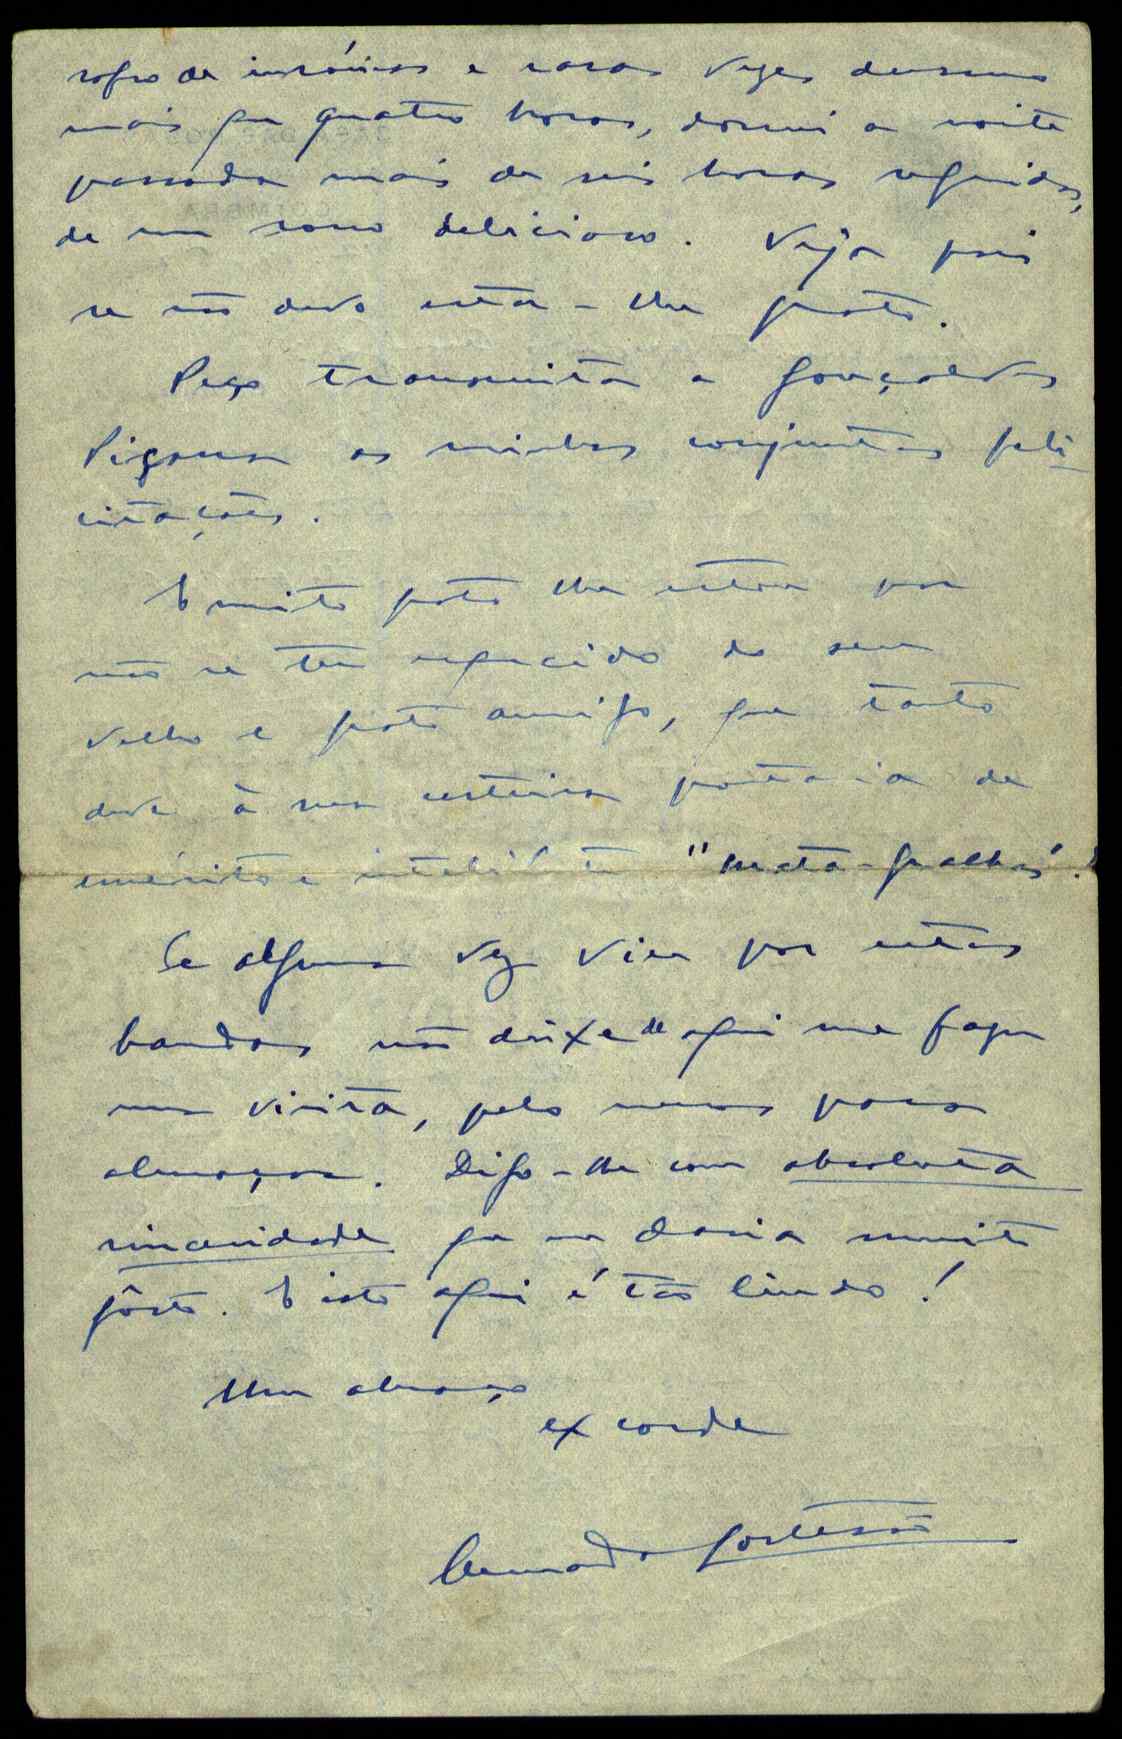 sofro de insónias e raras vezes durmo
mais que quatro horas, dormi a noite
passada mais de seis horas seguidas,
de um sono delicioso. Veja pois
se não devo estar-lhe grato.
Peço transmita a Gonçalves
as minhas conjuntas feli-
citações.
E muito grato lhe estou por
não se ter esquecido do seu
velho e grato amigo, que tanto
deve à sua certeira pontaria de
emérito e "mata-gralhas".
Se alguma vez vier por estas
bandas não deixe de aqui me fazer
uma visita, pelo menos para
almoçar. Digo-lhe com absoluta
sinceridade que me daria muito
gôsto. E isto aqui é tão lindo!
Um abraço
ex corde
Armando Cortesão